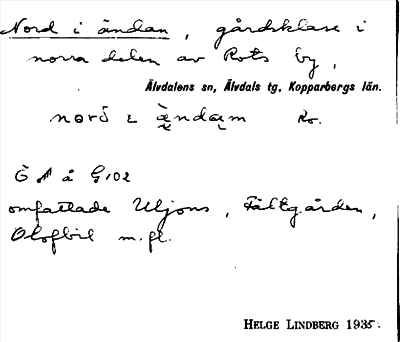 Nord i ändan, gårdsklase i
norra delen av Rots by,
Älvdalens sn, Älvdals tg, Kopparbergs län.
Ro.
G102
omfattade Uljons, Fältgården,
Olofbil m.fl.
HELGE LINDBERG 1935.